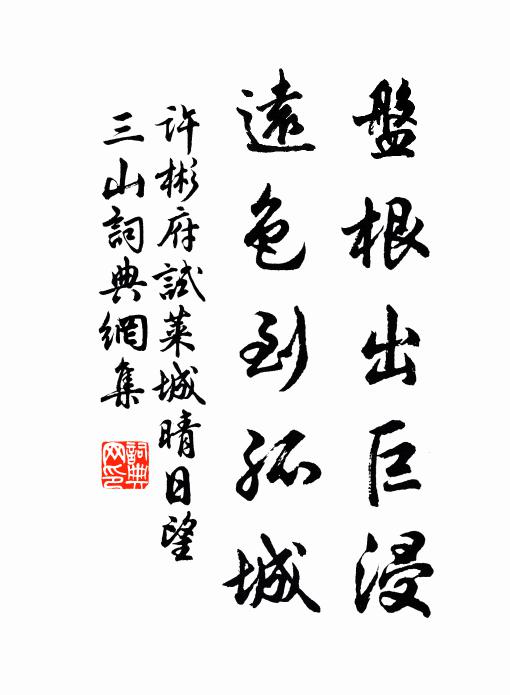 盤根出巨浸
遠色到孤城
許彬府試萊城晴日望
三山詞典網集
詞典網印